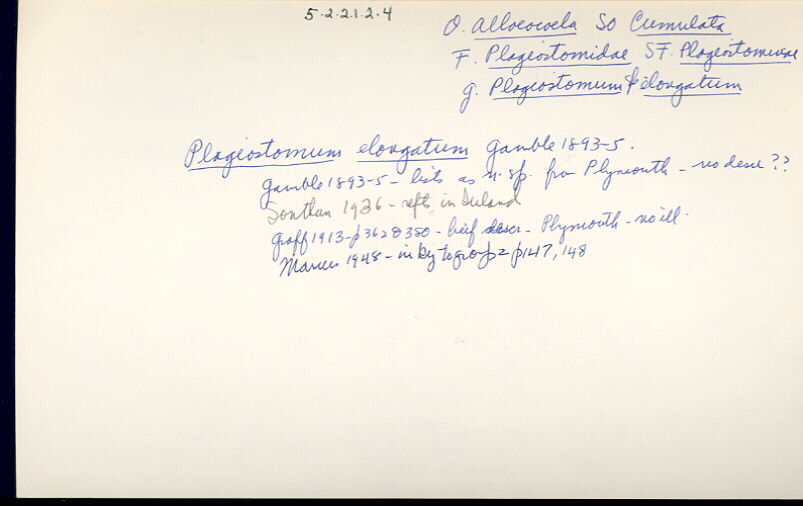 5.2.2.1.2.4
O. Alloeocoela SO Cumulata
F. Plagiostomidae SF. Plagiostominae
g. Plagiostomum elongatum
Plagiostomum elongatum Gamble 1893-5.
Gamble 1893-5 - lists as n. sp. from Plymouth - no descr ??
Southern 1936 - repts in Ireland
Graff 1913 - p362 & 380 - brief descr - Plymouth - no ill.
Marcus 1948 - in key to grp 2 p147, 148